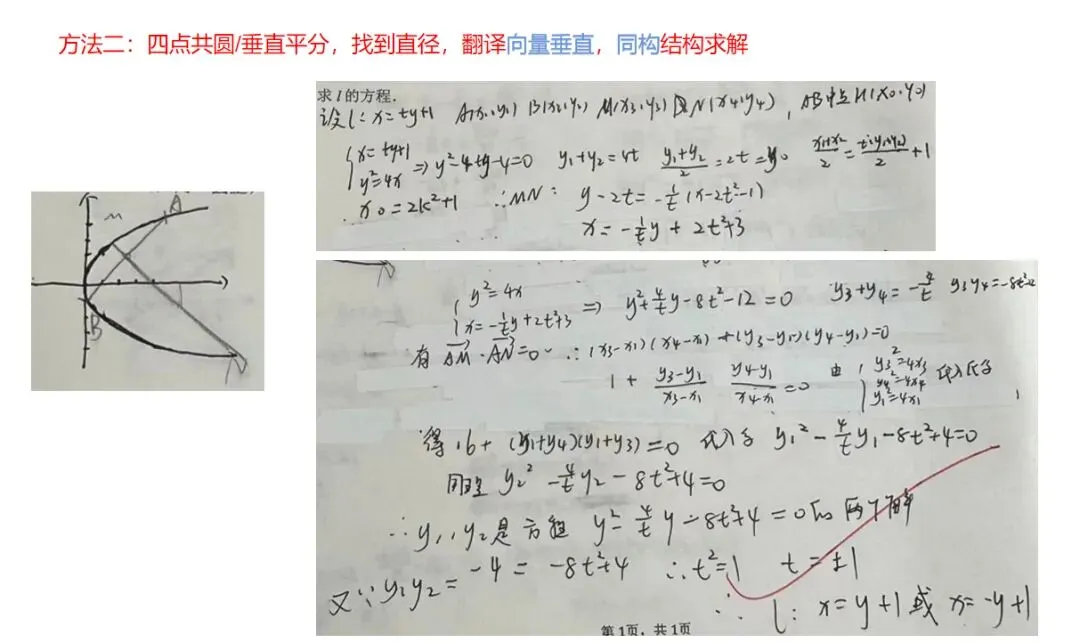 方法二：四点共圆/垂直平分，找到直径，翻译向量垂直，同构结构求解
求l的方程.
设l: x=ty+1 A(x₁,y₁) B(x₂,y₂) M(x₃,y₃) N(x₄,y₄), AB中点H(x₀,y₀)
{x=ty+1 y²=4x ⇒ y²-4ty-4=0 y₁+y₂=4t (y₁+y₂)/2=2t=y₀ (x₁+x₂)/2=t(y₁+y₂)/2+1
x₀=2k²+1 ∴MN: y-2t=-1/t(x-2t²-1)
x=-1/t y+2t²+3
M
A
B
N
{y²=4x x=-1/t y+2t²+3 ⇒ y²+4/t y-8t²-12=0 y₃+y₄=-4/t y₃y₄=-8t²-12
有 AM·AN=0 ∴(x₃-x₁)(x₄-x₁)+(y₃-y₁)(y₄-y₁)=0
1+(y₃-y₁)/(x₃-x₁) (y₄-y₁)/(x₄-x₁)=0 由{y₃²=4x₃ y₄²=4x₄ y₁²=4x₁ 代入式子
得16+(y₁+y₄)(y₁+y₃)=0 代入子 y₁²-4/t y₁-8t²+4=0
同理 y₂²-4/t y₂-8t²+4=0
∴y₁,y₂是方程 y²-4/t y-8t²+4=0的两个解
又∵y₁y₂=-4=-8t²+4 ∴t²=1 t=±1
∴ l: x=y+1或x=-y+1
第1页，共1页